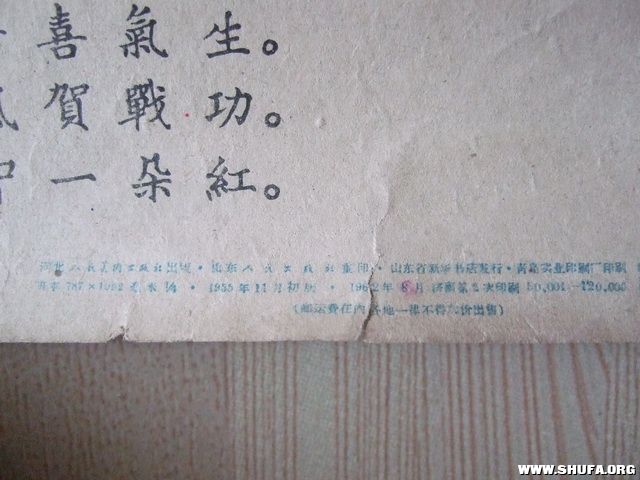 喜氣生。
賀戰功。
一朵紅。
河北人民美術出版社出版・山东人民出版社重印・山东省新华书店发行・青島实业印刷厂印刷
787×1092 1955年11月初版・1962年 月 济南第2次印刷 50,001—120,000
(邮运费在内 各地一律不得加价出售)
WWW.SHUFA.ORG